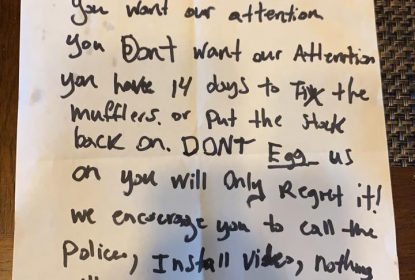 you want our attention
you Dont want our Attention
you have 14 days to Fix the
mufflers. or Put the stock
back on. DONT Egg us
on you will Only Regret it!
we encourage you to call the
Police, Install Video, nothing